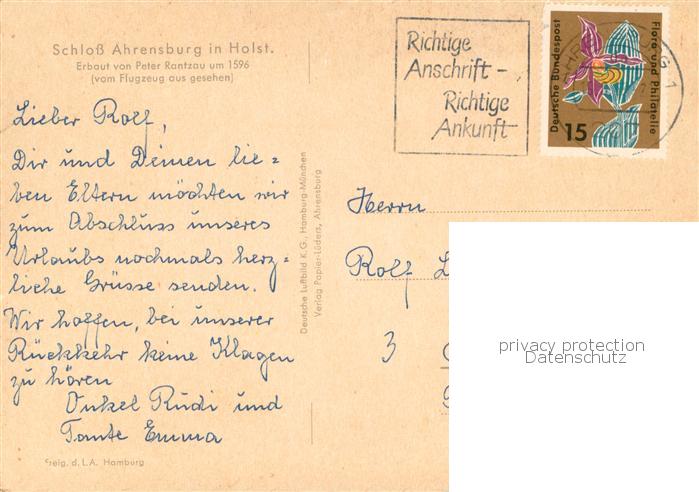 Schloß Ahrensburg in Holst.
Erbaut von Peter Rantzau um 1596
(vom Flugzeug aus gesehen)
Lieber Rolf,
Dir und Deinen lie=
ben Eltern möchten wir
zum Abschluss unseres
Urlaubs nochmals herz=
liche Grüsse senden.
Wir hoffen, bei unserer
Rückkehr keine Klagen
zu hören
Onkel Rudi und
Tante Emma
Freig. d. L.A. Hamburg
Deutsche Luftbild K.G., Hamburg-München
Verlag Papier-Lüders, Ahrensburg
Richtige
Anschrift –
Richtige
Ankunft
Deutsche Bundespost
Flora und Philatelie
15
Herrn
Rolf
3
privacy protection
Datenschutz